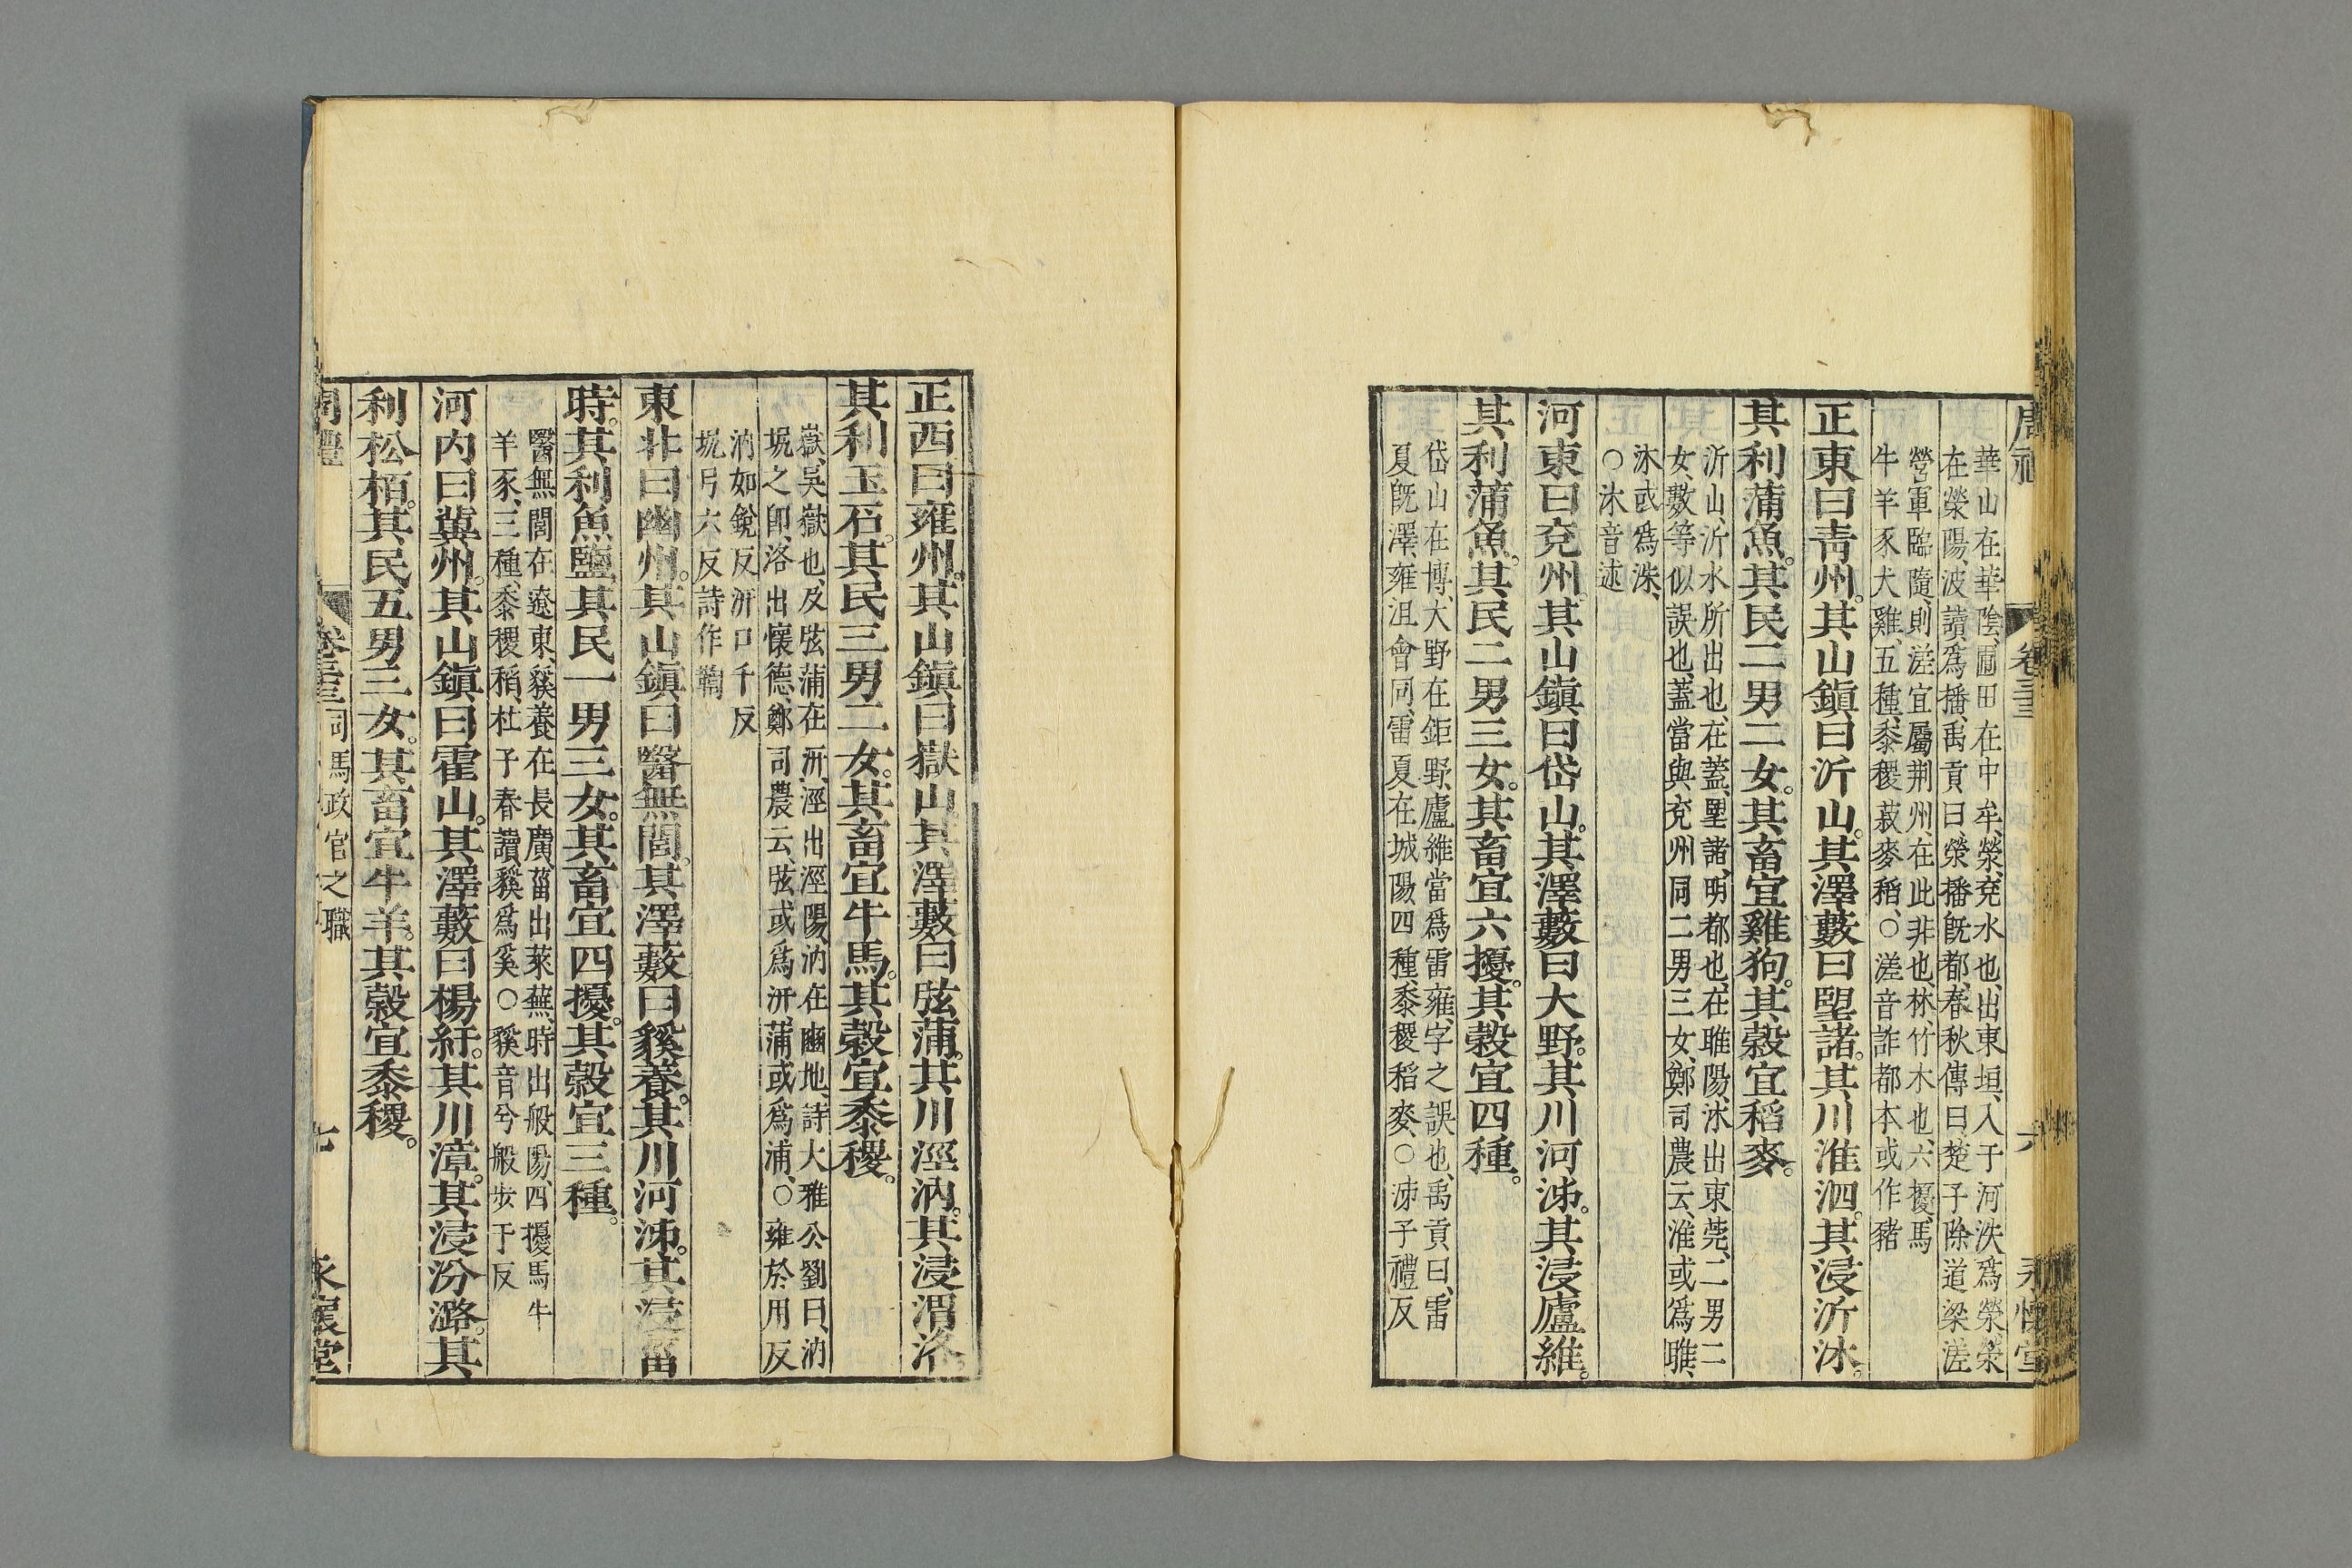 華山在華陰、圃田在中牟、滎、兗水也、出東垣、入于河、泆爲滎、滎
在滎陽、波讀爲播、禹貢曰、滎播旣都、春秋傳曰、楚子除道梁溠
營軍臨隨、則溠宜屬荆州、在此非也、林竹木也、六擾、馬
牛羊豕犬雞、五種、黍稷菽麥稻、○溠音詐都本或作豬
正東曰靑州。其山鎭曰沂山。其澤藪曰朢諸。其川淮泗。其浸沂沭。
其利蒲魚。其民二男二女。其畜宜雞狗。其穀宜稻麥。
沂山、沂水所出也、在蓋、朢諸、明都也、在睢陽、沭出東莞、二男二
女、數等似誤也、蓋當與兗州同二男三女、鄭司農云、淮或爲睢、
沭或爲洙、
○沭音述
河東曰兗州。其山鎭曰岱山。其澤藪曰大野。其川河泲。其浸廬維。
其利蒲魚。其民二男三女。其畜宜六擾。其穀宜四種。
岱山在博、大野在鉅野、廬維當爲雷雍、字之誤也、禹貢曰、雷
夏旣澤、雍沮會同、雷夏在城陽、四種、黍稷稻麥、○泲子禮反
正西曰雍州。其山鎭曰嶽山。其澤藪曰弦蒲。其川涇汭。其浸渭洛。
其利玉石。其民三男二女。其畜宜牛馬。其穀宜黍稷。
嶽、吳嶽也、及弦蒲在汧、涇出涇陽、汭在豳地、詩大雅公劉曰、汭
坭之卽、洛出懷德、鄭司農云、弦或爲汧、蒲或爲浦、○雍於用反
汭如銳反汧口千反
坭弓六反詩作鞫
東北曰幽州。其山鎭曰醫無閭。其澤藪曰貕養。其川河泲。其浸菑
時。其利魚鹽。其民一男三女。其畜宜四擾。其穀宜三種。
醫無閭在遼東、貕養在長廣、菑出萊蕪、時出般陽、四擾、馬牛
羊豕、三種、黍稷稻、杜子春讀貕爲奚○貕音兮般步干反
河內曰冀州。其山鎭曰霍山。其澤藪曰楊紆。其川漳。其浸汾潞。其
利松柏。其民五男三女。其畜宜牛羊。其穀宜黍稷。
周禮 卷三十三 司馬政官之職 七 永懷堂